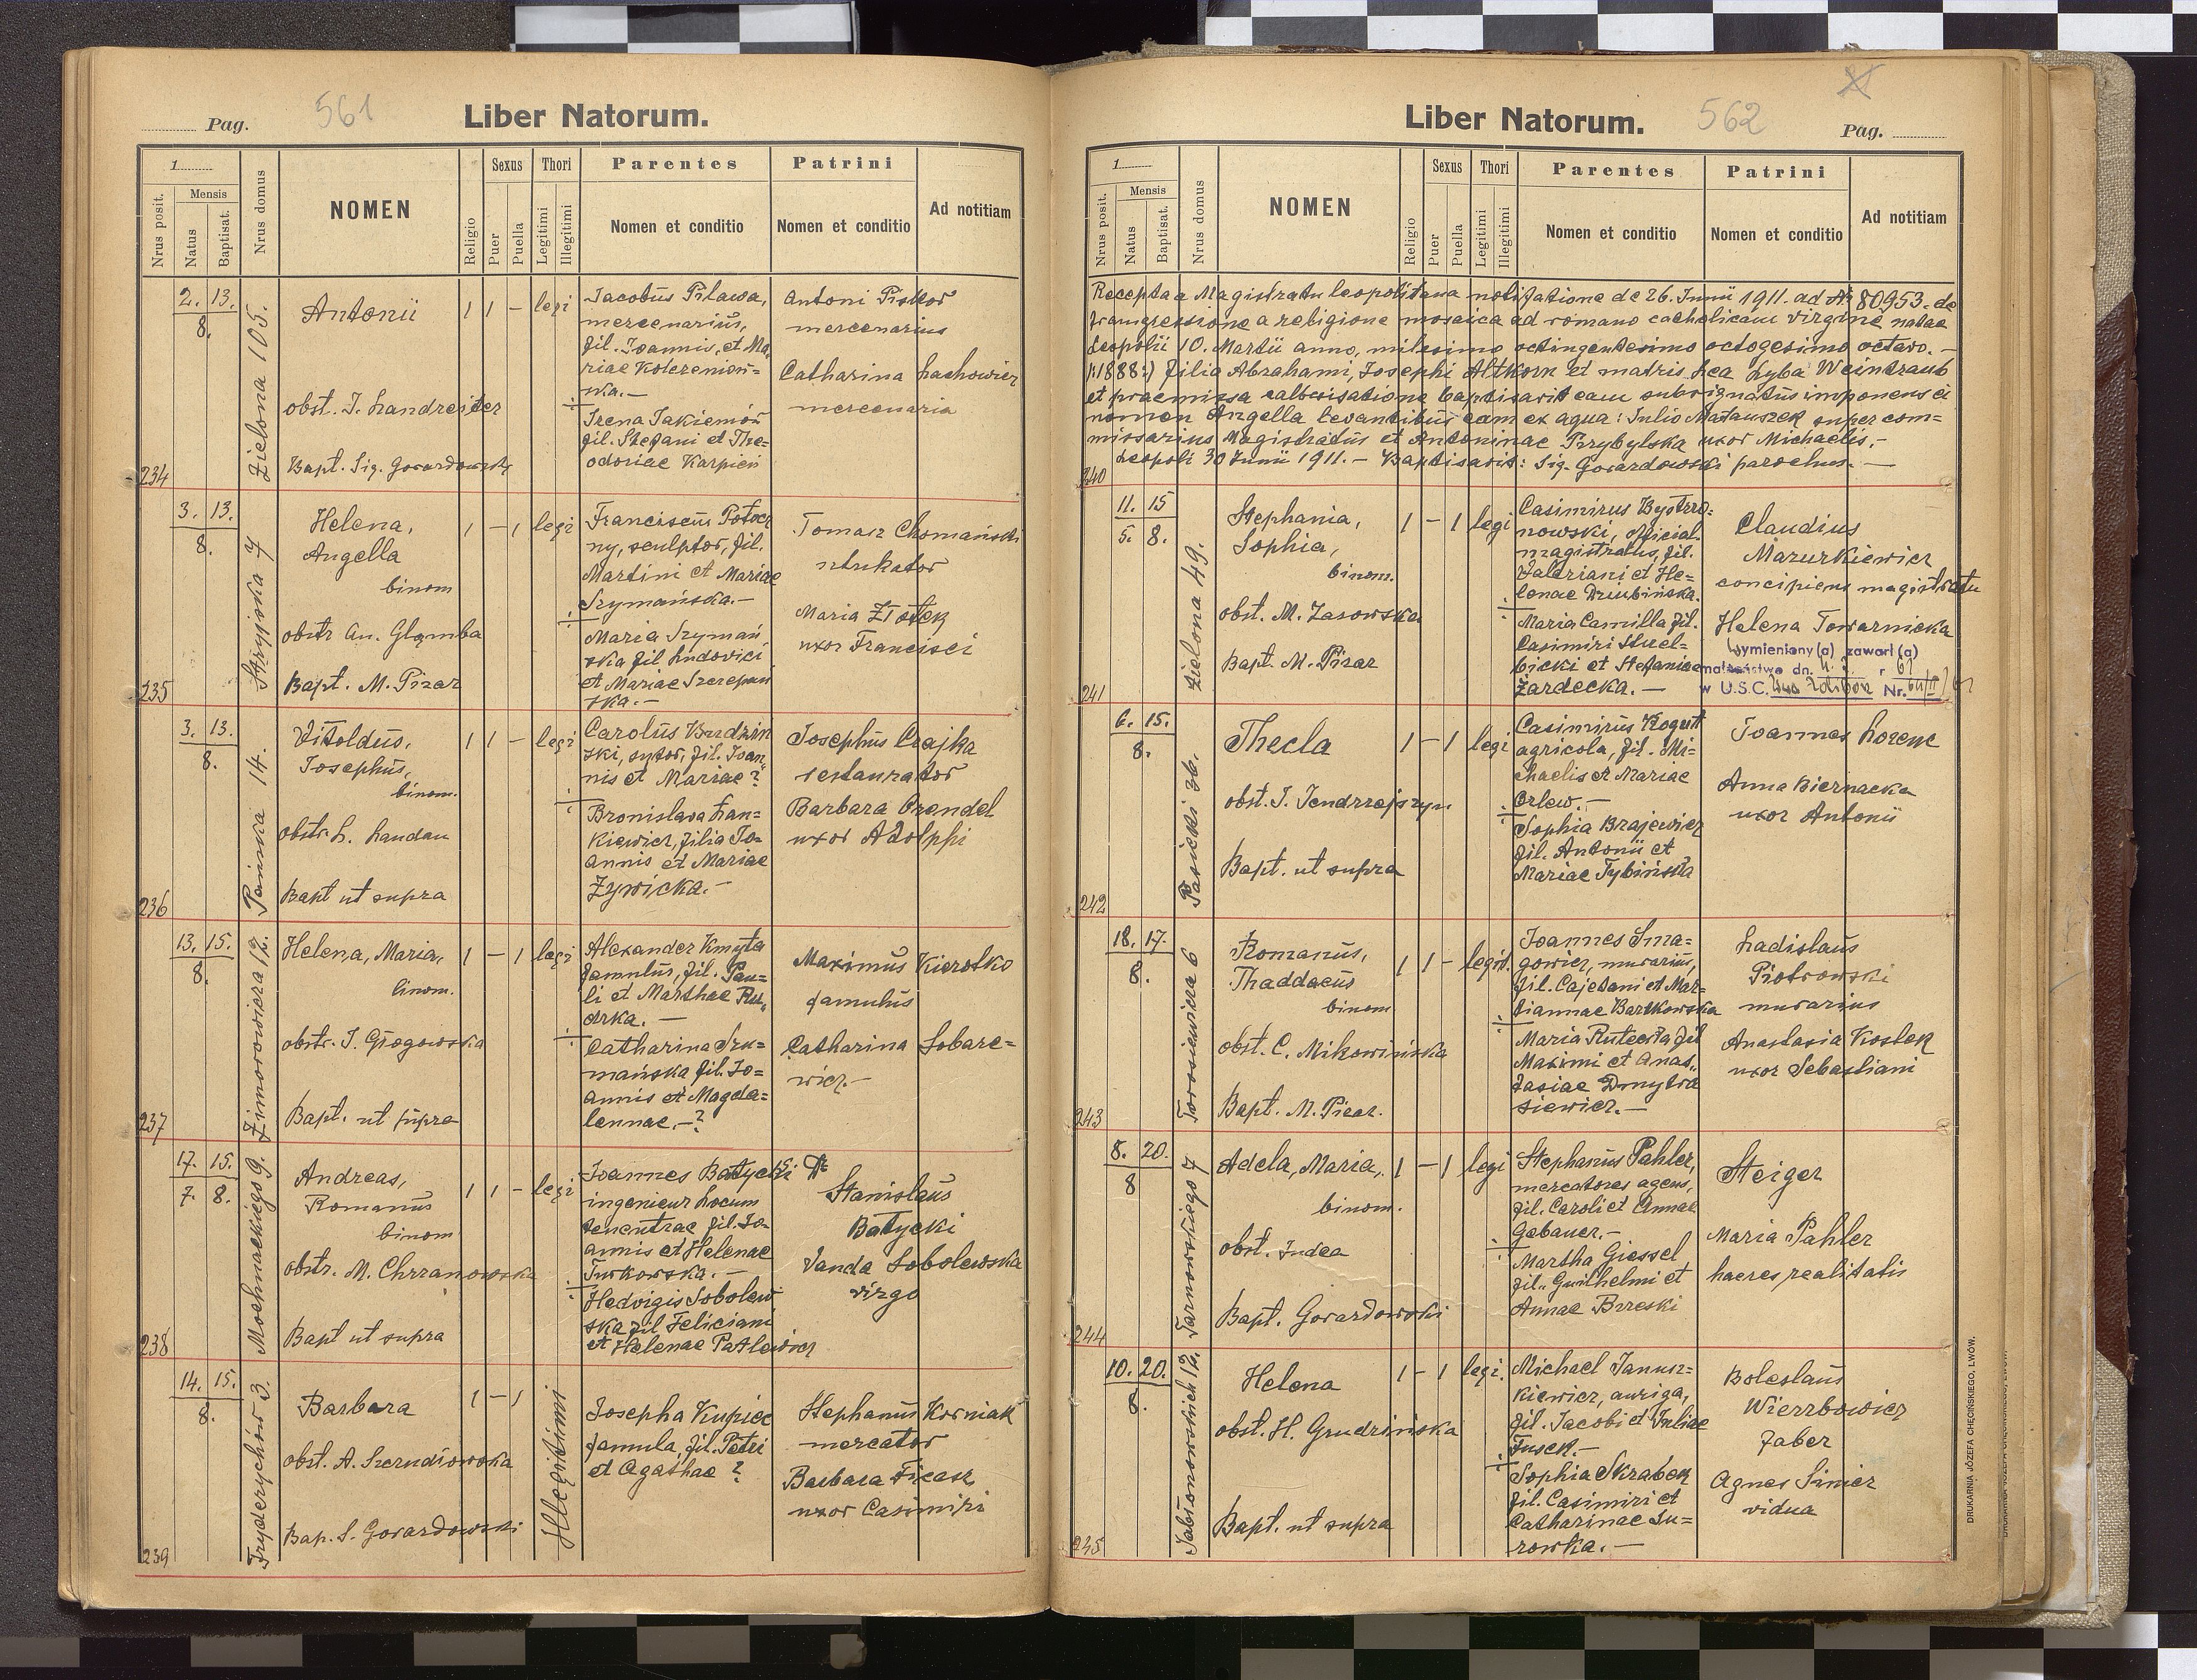 Pag. 561 Liber Natorum.
1
Nrus posit.
Mensis
Natus
Baptisat.
Nrus domus
NOMEN
Religio
Sexus
Puer
Puella
Thori
Legitimi
Illegitimi
Parentes
Nomen et conditio
Patrini
Nomen et conditio
Ad notitiam
234
2. 13.
8.
Zielona 105.
Antonii
obst. J. Landreiter
Bapt. Sig. Gorardowski
1 1 – legi
Jacobus Pilawa,
mercenarius,
fil. Joannis, et Ma,
riae
ska.–
Irena
fil. Stefani et The=
odoriae Karpicii
Antoni Piskor
mercenarius
Catharina Lachowicz
mercenaria
235
3. 13.
8.
Stryjska 7
Helena,
Angella
binom
obstr An. Gląmba
Bapt. M. Pizar
1 – 1 legi
Franciscus Potocz
ny, sculptor, fil.
Martini et Mariae
Szymańska.–
Maria Szymań
ska fil Ludovici
et Mariae Szczepań
ska.–
Tomasz Chomański
Maria Złotek
uxor Francisci
236
3. 13.
8.
14.
Vitoldus,
Josephus,
binom.
obstr. L. Landau
Bapt ut supra
1 1 – legi
Carolus Budzin
ski, sutor, fil. Joan„
nis et Mariae ?
Bronislava Łan=
kiewicz, filia Jo=
annis et Mariae
Żywicka.–
Josephus Czajka
restaurator
Barbara Orendel
uxor Adolphi
237
13. 15.
8.
Zimorowicza 12.
Helena, Maria,
binom.
obstr. J. Głogowska
Bapt. ut supra
1 – 1 legi
Alexander Kmyta
famulus, fil. Pau=
li et Marthae Ru„
drka. –
Catharina Szu=
mańska fil. Jo=
annis et Magda=
lennae.–?
Maximus Kierotko
famulus
Catharina Sobarc=
wicz.–
238
17. 15.
7. 8.
Mochnackiego 9.
Andreas,
Romanus
binom
obstr. M. Chrzanowska
Bapt ut supra
1 1 – legi
Joannes Batycki
ingenieur Locum
fil. Jo=
annis et Helenae
Turkowska.–
Hedvigis Sobolew
ska fil Feliciani
et Helenae Patlewicz
Stanislaus
Batycki
Vanda Sobolewska
virgo
239
14. 15.
8.
Fryderychów 3.
Barbara
obst. A. Szendiowska
Bap. S. Gorardowski
1 – 1
Illegitimi
Josepha Kupiec
famula, fil. Petri
et Agathae ?
Stephanus Korniak
mercator
Barbara Ficask
uxor Casimiri
Liber Natorum. 562 Pag.
1
Nrus posit.
Mensis
Natus
Baptisat.
Nrus domus
NOMEN
Religio
Sexus
Puer
Puella
Thori
Legitimi
Illegitimi
Parentes
Nomen et conditio
Patrini
Nomen et conditio
Ad notitiam
240
Recepta a Magistratu leopolitana notifatione de 26. Junii 1911. ad № 80953. de
transgressione a religione mosaica ad romano catholicam virgine natae
Leopolii 10. Martii anno, milesimo octingentesimo octogesimo octavo.–
/:1888:/ filia Abrahami, Josephi Altkorn et matris Lea Lyba Weintraub
et praemissa catherisatione baptisavit eam subsignatus imponens ei
nomen Angella levantibus eam ex aqua: Julio Matauszek super com=
missarius Magistratus et Antoninae Przybylska uxor Michaelis.–
Leopoli 30 Junii 1911.– Baptisavit: Sig. Gorardowski parochus.–
241
11. 15
5. 8.
Zielona 49.
Stephania,
Sophia,
binom.
obst. M. Zasowska
Bapt. M. Pizar
1 – 1 legi
Casimirus Bystrzo=
nowski, official.
magistratus, fil.
Valeriani et He=
lenae Dziubińska.
Maria Camilla fil.
Casimiri Stuel=
bicki et Stefaniae
Żardecka.–
Claudius
Mazurkiewicz
concipiens magistratu
Helena Towarnicka
Wymieniony(a) zawarł(a)
małżeństwo dn. r 61
w U.S.C. Nr.
242
6. 15.
8.
Pasieki 36.
Thecla
obst. J. Jendrzejszyn.
Bapt. ut supra
1 – 1 legi
Casimirus Kogutt
agricola, fil. Mi=
chaelis et Mariae
Orlew.–
Sophia Brajewicz
fil. Antonii et
Mariae Tybińska
Joannes Lorenc
Anna Biernacka
uxor Antonii
243
18. 17.
8.
Torosiewicza 6
Romanus,
Thaddaeus
binom
obst. C. Mikowińska
Bapt. M. Picar.
1 1 – legit.
Joannes Sma=
gowicz, murarius,
fil. Cajetani et Mar=
tiannae Bartkowska
Maria Rutecka fil
Maximi et Anas„
tasiae Dmytra
siewicz.–
Ladislaus
Piotrowski
murarius
Anastasia Kostek
uxor Sebastiani
244
8. 20.
8
Tarnowskiego 7
Adela, Maria,
binom.
obst. Judea
Bapt. Gorardowski
1 – 1 legi
Stephanus Pahler,
mercatores agens,
fil. Caroli et Annae
Gebauer.–
Martha Giessel
fil. Guilhelmi et
Annae Brzeski
Steiger
Maria Pahler
haeres realitatis
245
10. 20.
8.
Jabłonowskich 12.
Helena
obst. H. Grudzińska
Bapt. ut supra
1 – 1 legi.
Michael Janusz=
kiewicz, auriga,
fil. Jacobi et Juliae
Tusek.–
Sophia Skrabek
fil. Casimiri et
Catharinae Su=
rowka.–
Boleslaus
Wierzbowicz
faber
Agnes Sinicz
vidua
DRUKARNIA JÓZEFA CHĘCIŃSKIEGO, LWÓW.